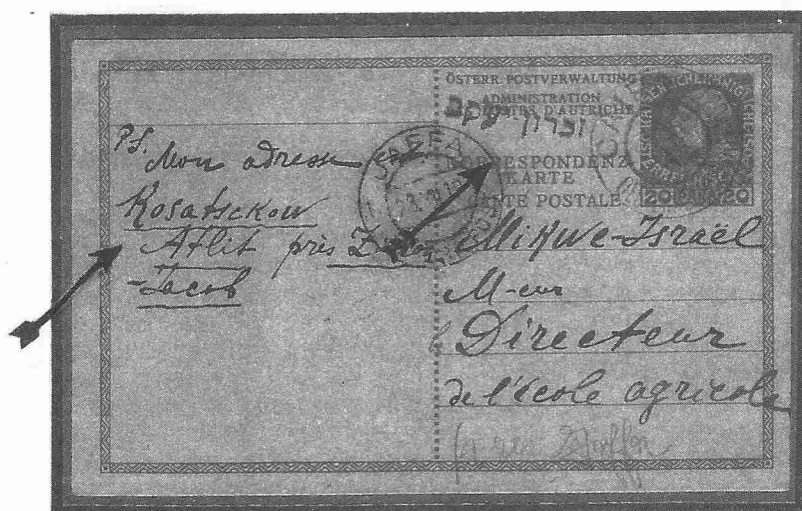 ÖSTERR. POSTVERWALTUNG
ADMINISTRATION
D'AUTRICHE
זכרון יעקב
CORRESPONDENZ
KARTE
CARTE POSTALE
20 20
JAFFA
P.S. Mon adresse
Rosatsckow
Atlit près
-Jacob
Mikwe-Israël
M-eur
Directeur
de l'école agricole